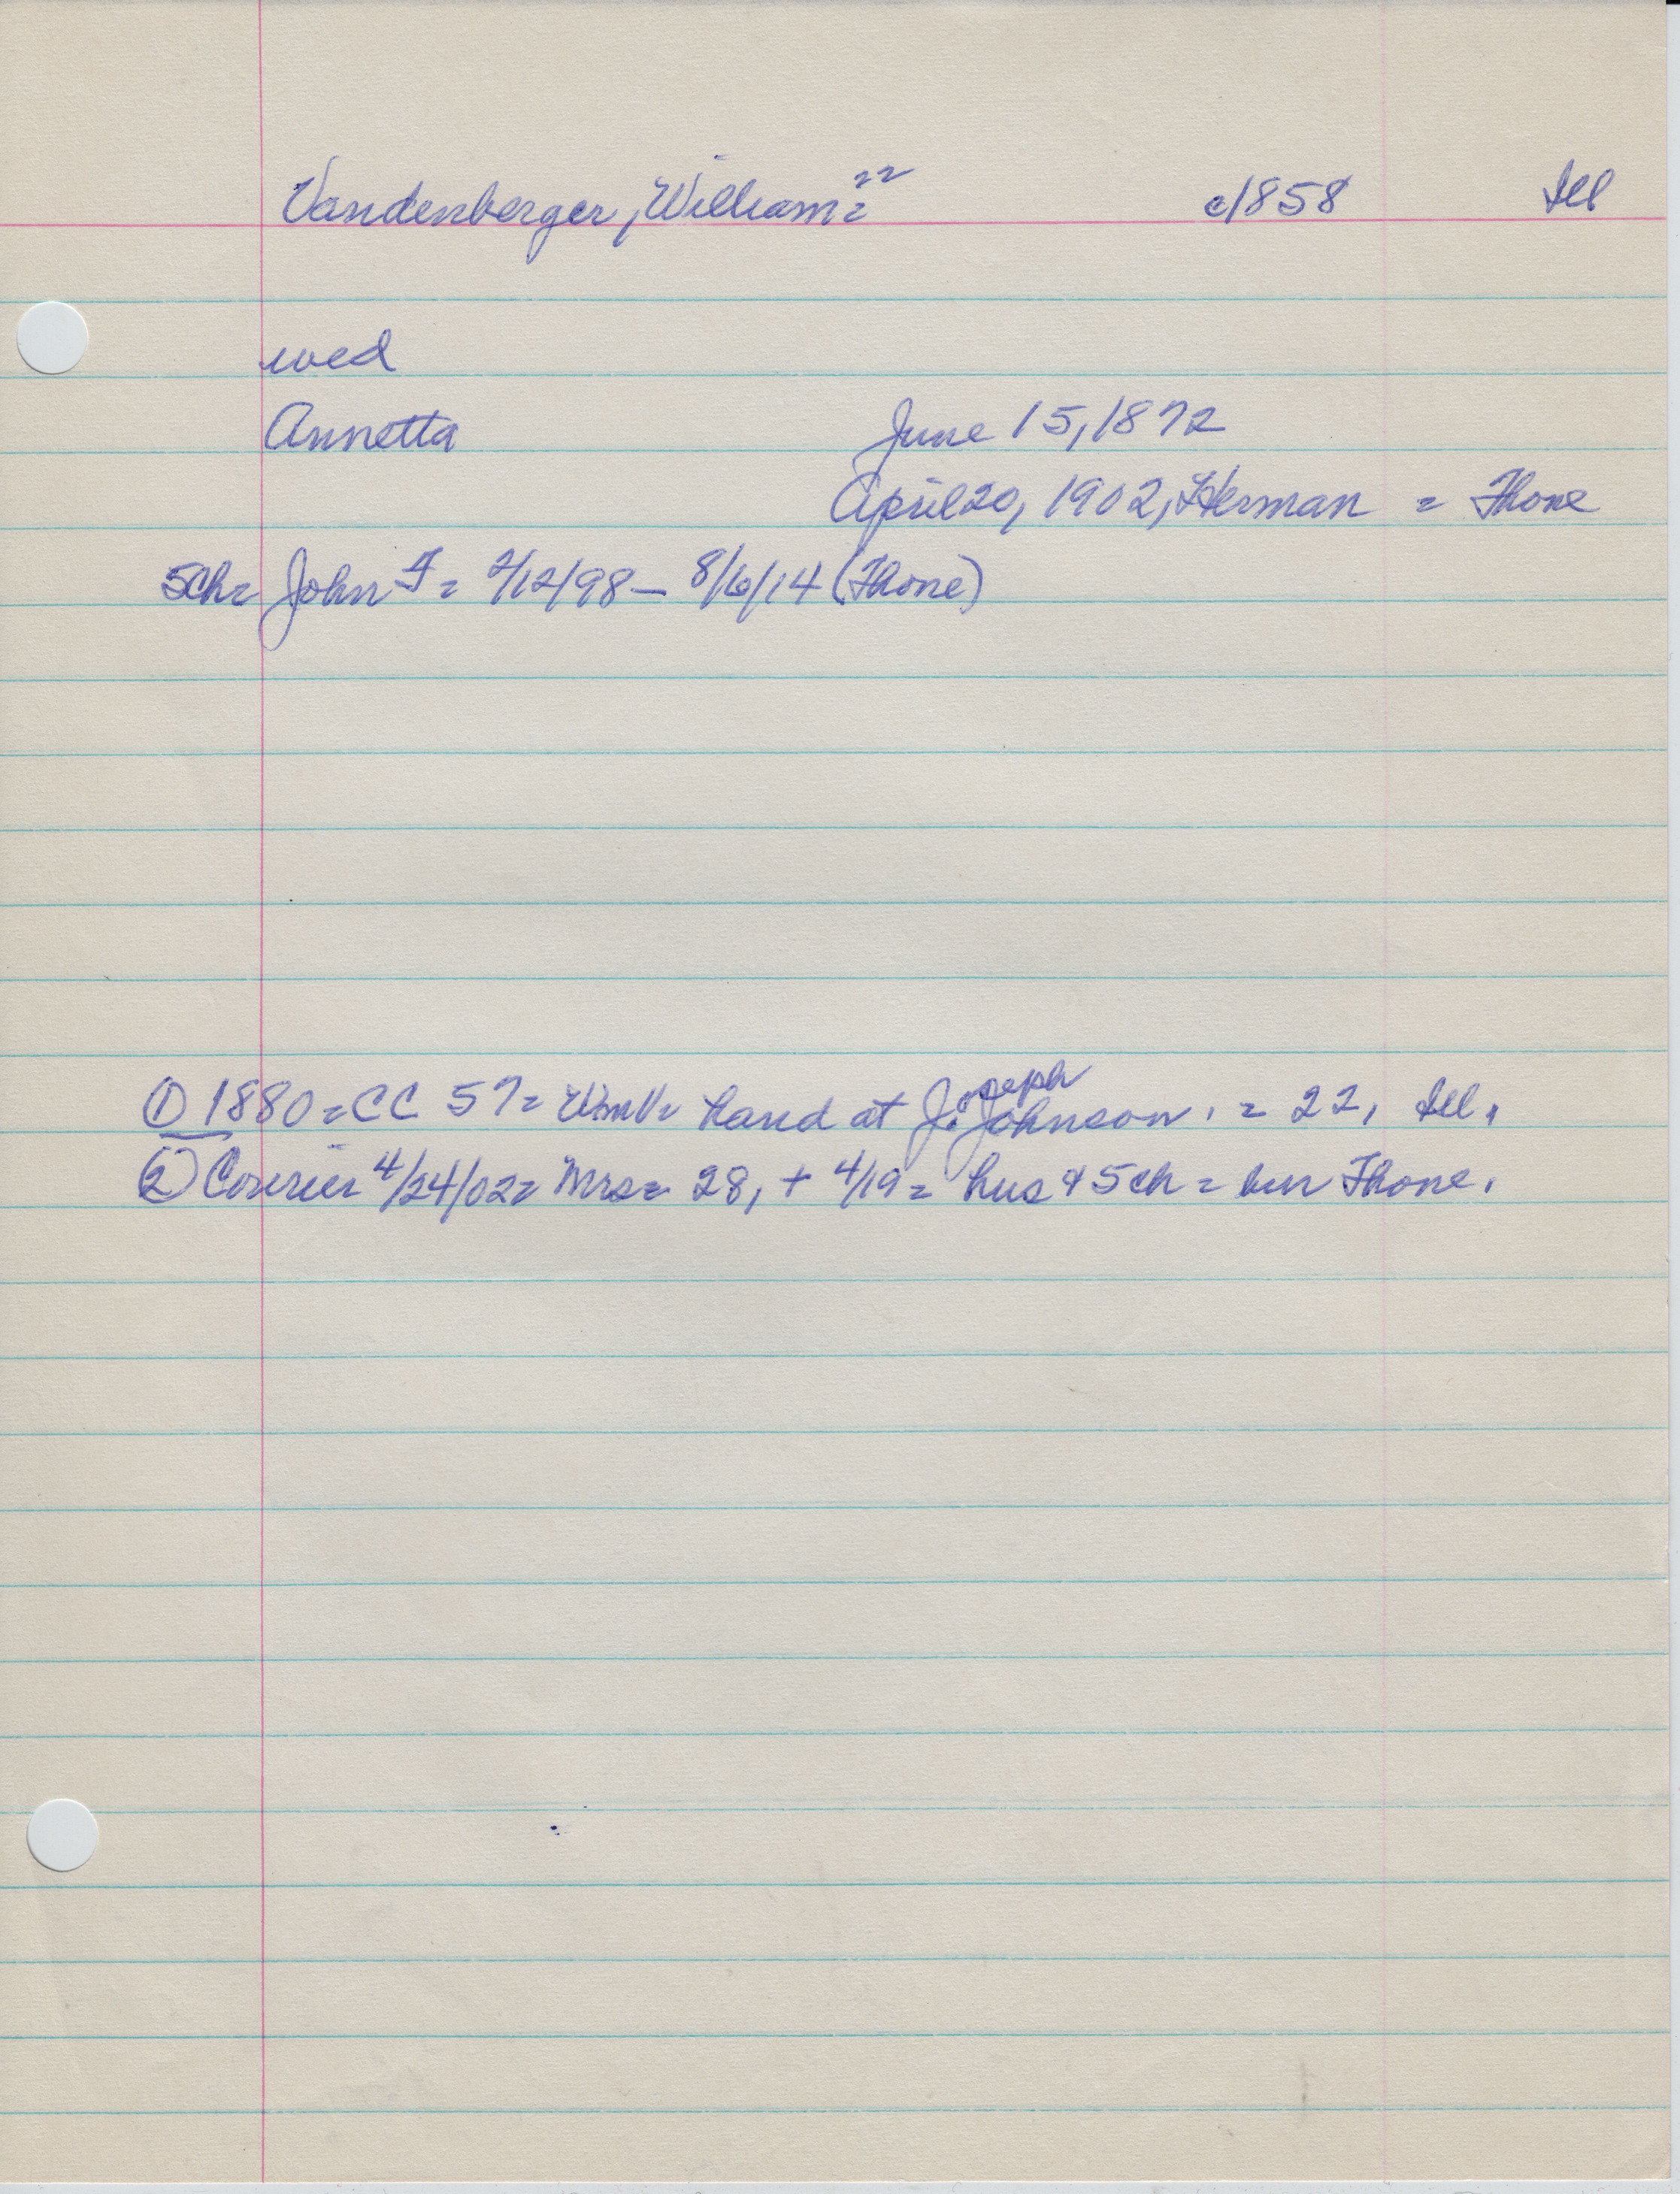 Vandenberger, William = 22 c/1858 Ill
wed
Annetta June 15, 1872
April 20, 1902, Herman = Thone
5ch = John F = 2/12/98 - 8/6/14 (Thone)
① 1880 = CC 57 = Wm V = hand at J. Joseph Johnson. = 22, Ill.
② Courier 4/24/02 = Mrs = 28, + 4/19 = hus & 5 ch = bur Thone.